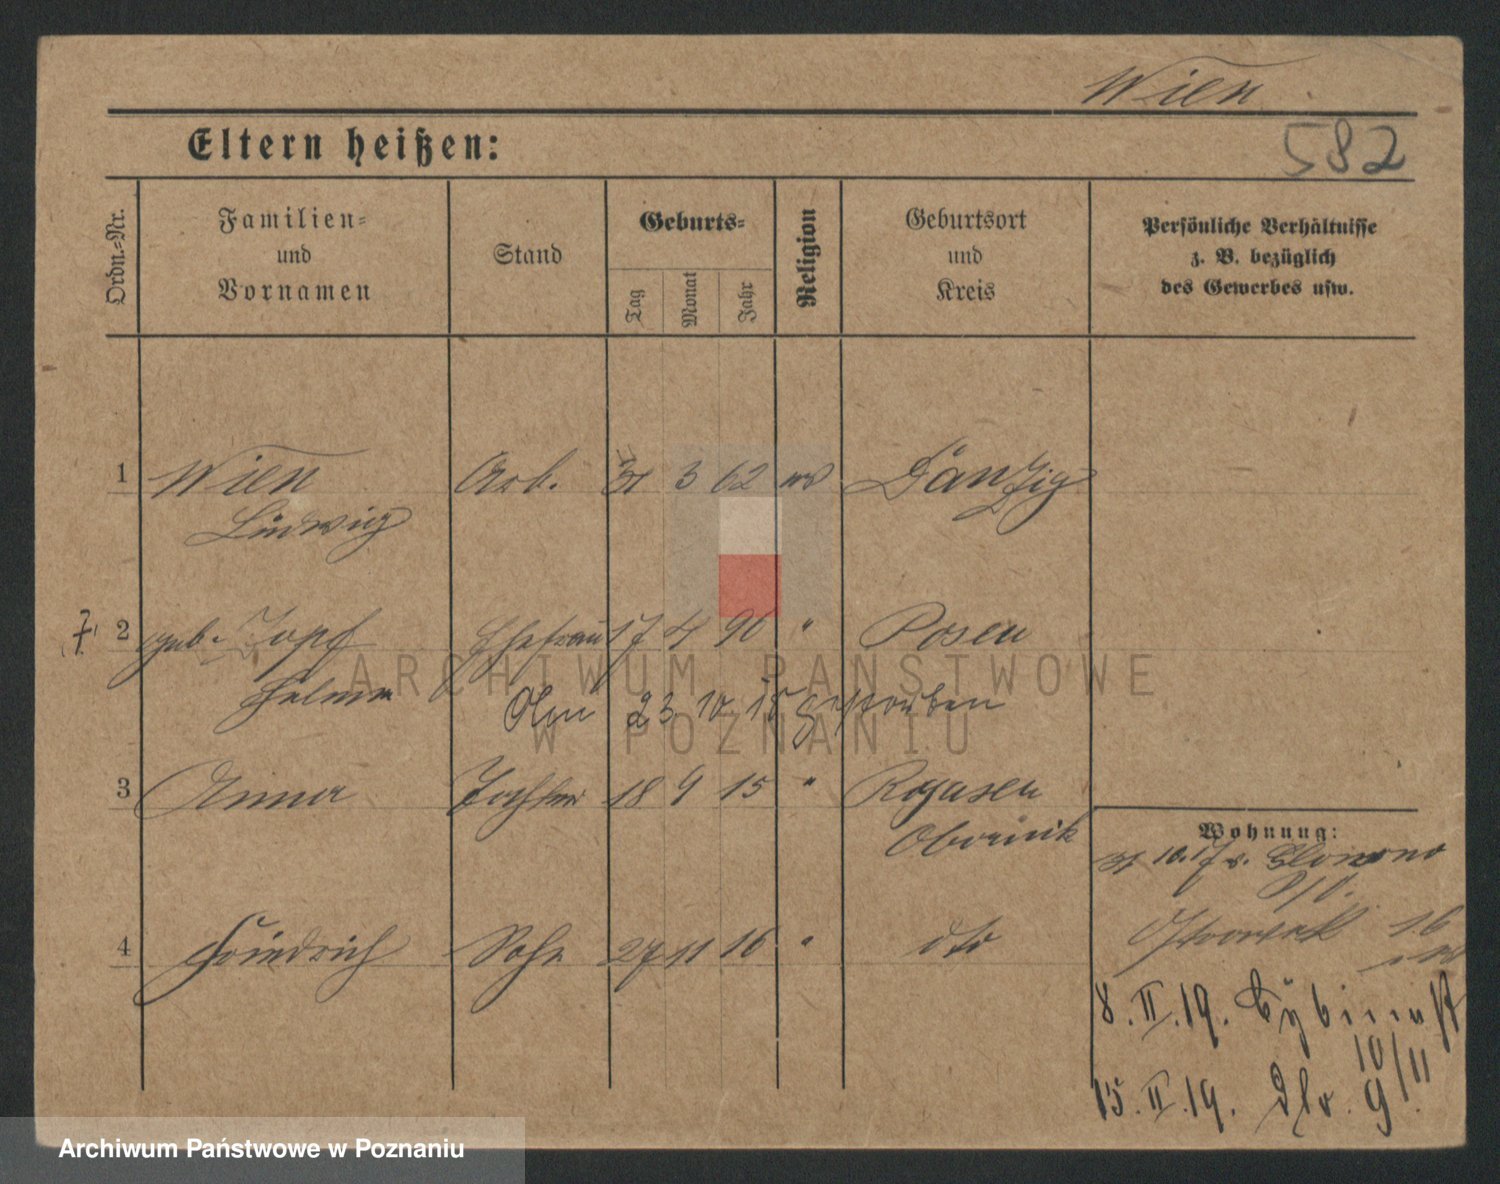 Wien
582
Eltern heißen:
Ordn.=Nr.
Familien=
und
Vornamen
Stand
Geburts=
Tag
Monat
Jahr
Religion
Geburtsort
und
Kreis
Persönliche Verhältnisse
z. B. bezüglich
des Gewerbes usw.
1 Wien Arb. 31 3 62 Danzig
Ludwig
2 geb. Topf Ehefrau 17 4 90 " Posen
Helma 23 10 18 gestorben
3 Anna Tochter 18 9 15 " Rogasen
Obornik
Wohnung:
31 10. 17 v.
4 Friedrich Sohn 27 11 16 " dto
16
8. II. 19.
10/11
15. II. 19. dto. 9
ARCHIWUM PAŃSTWOWE
W POZNANIU
Archiwum Państwowe w Poznaniu